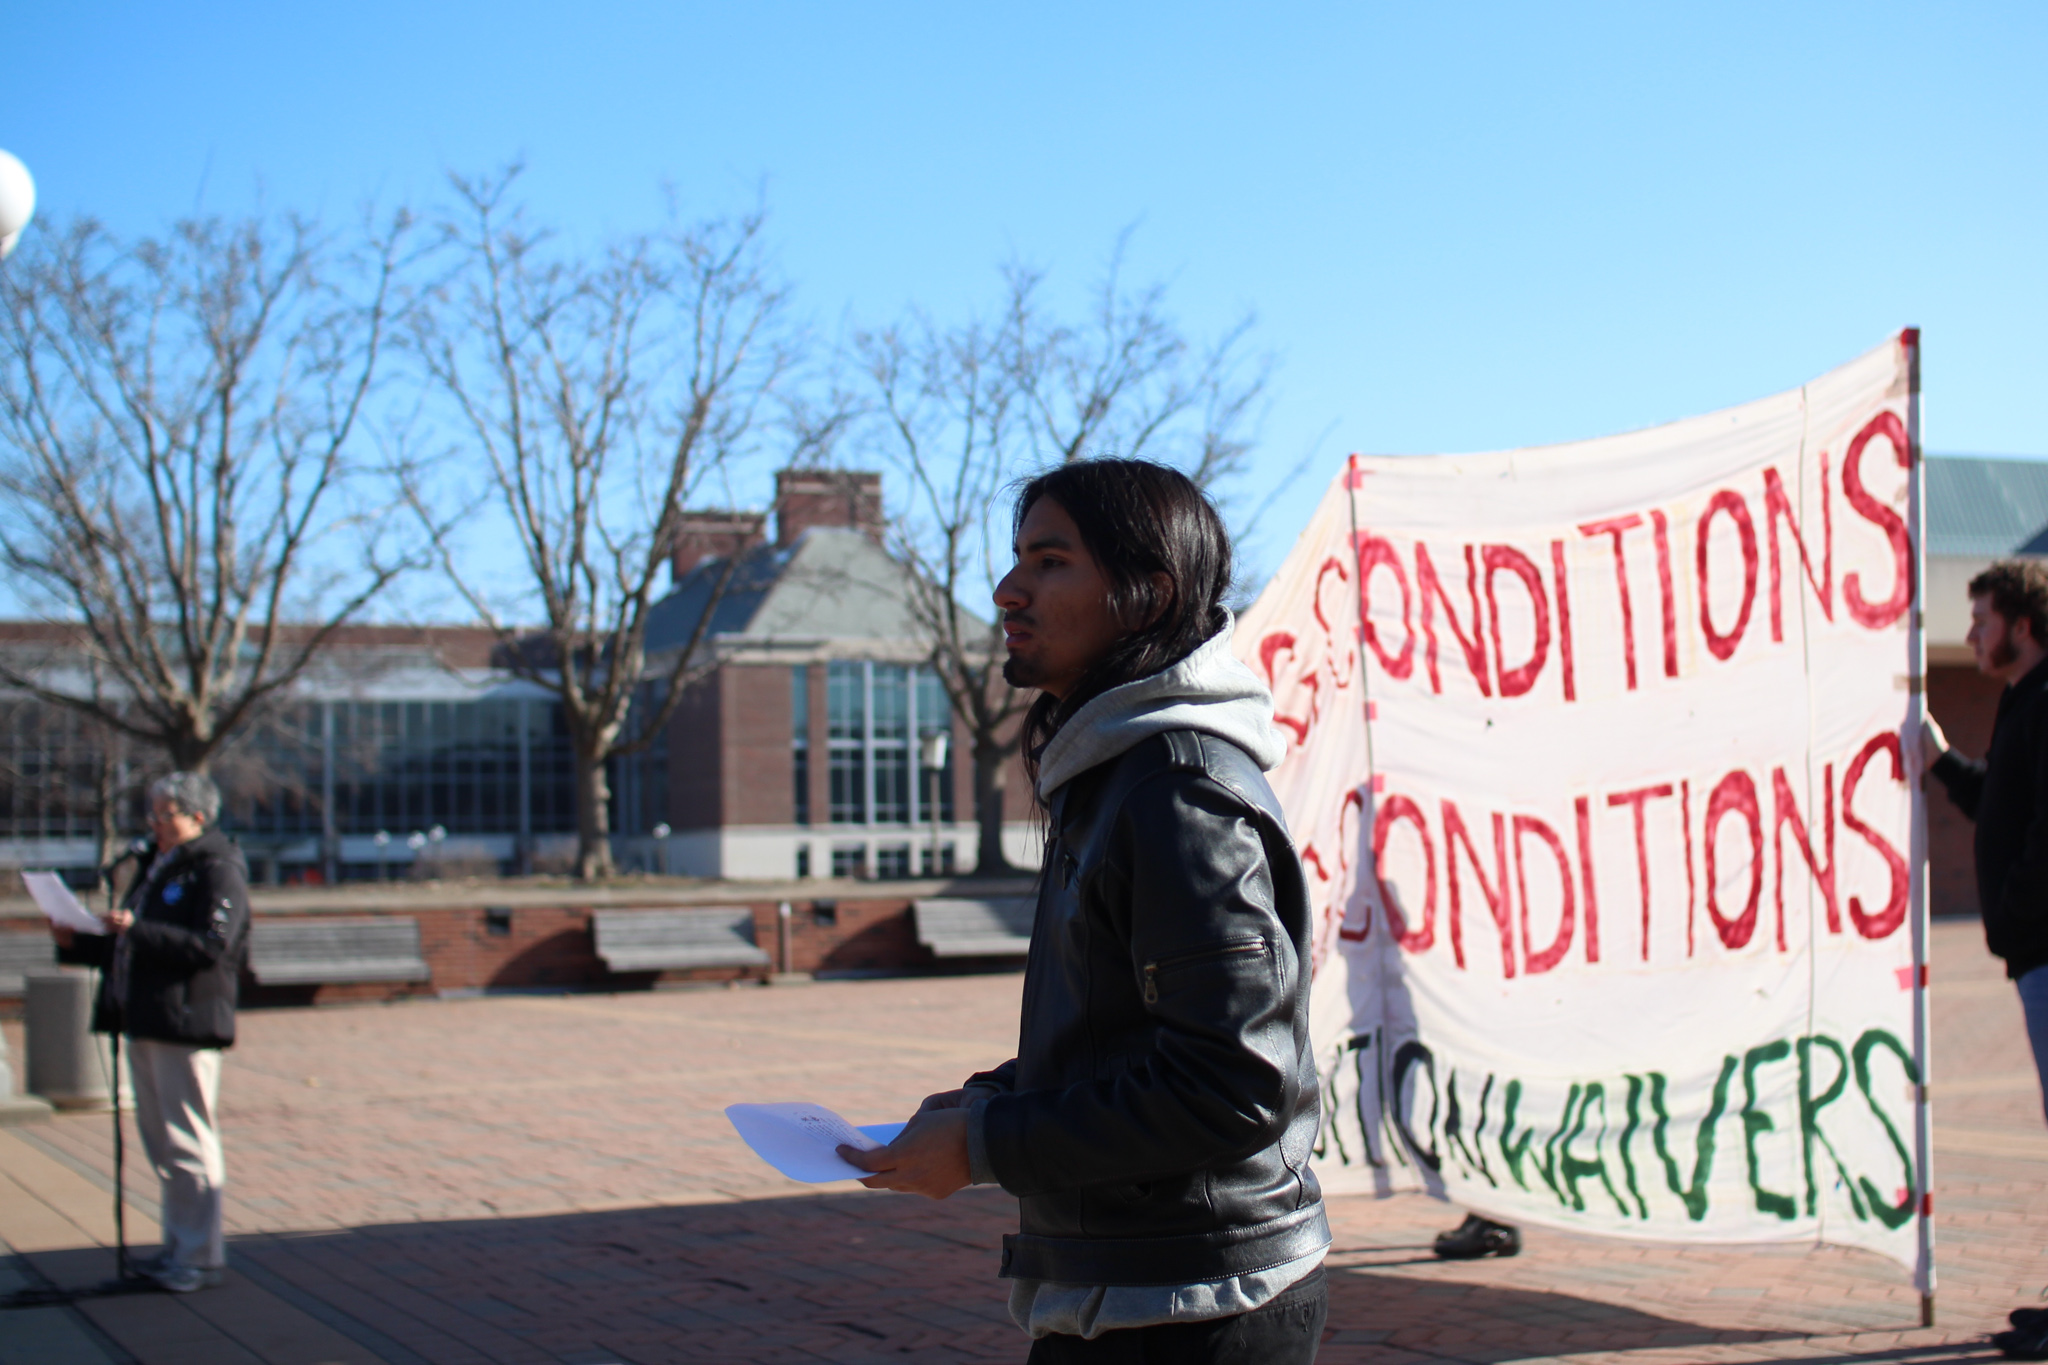 G CONDITIONS
G CONDITIONS
ITION WAIVERS